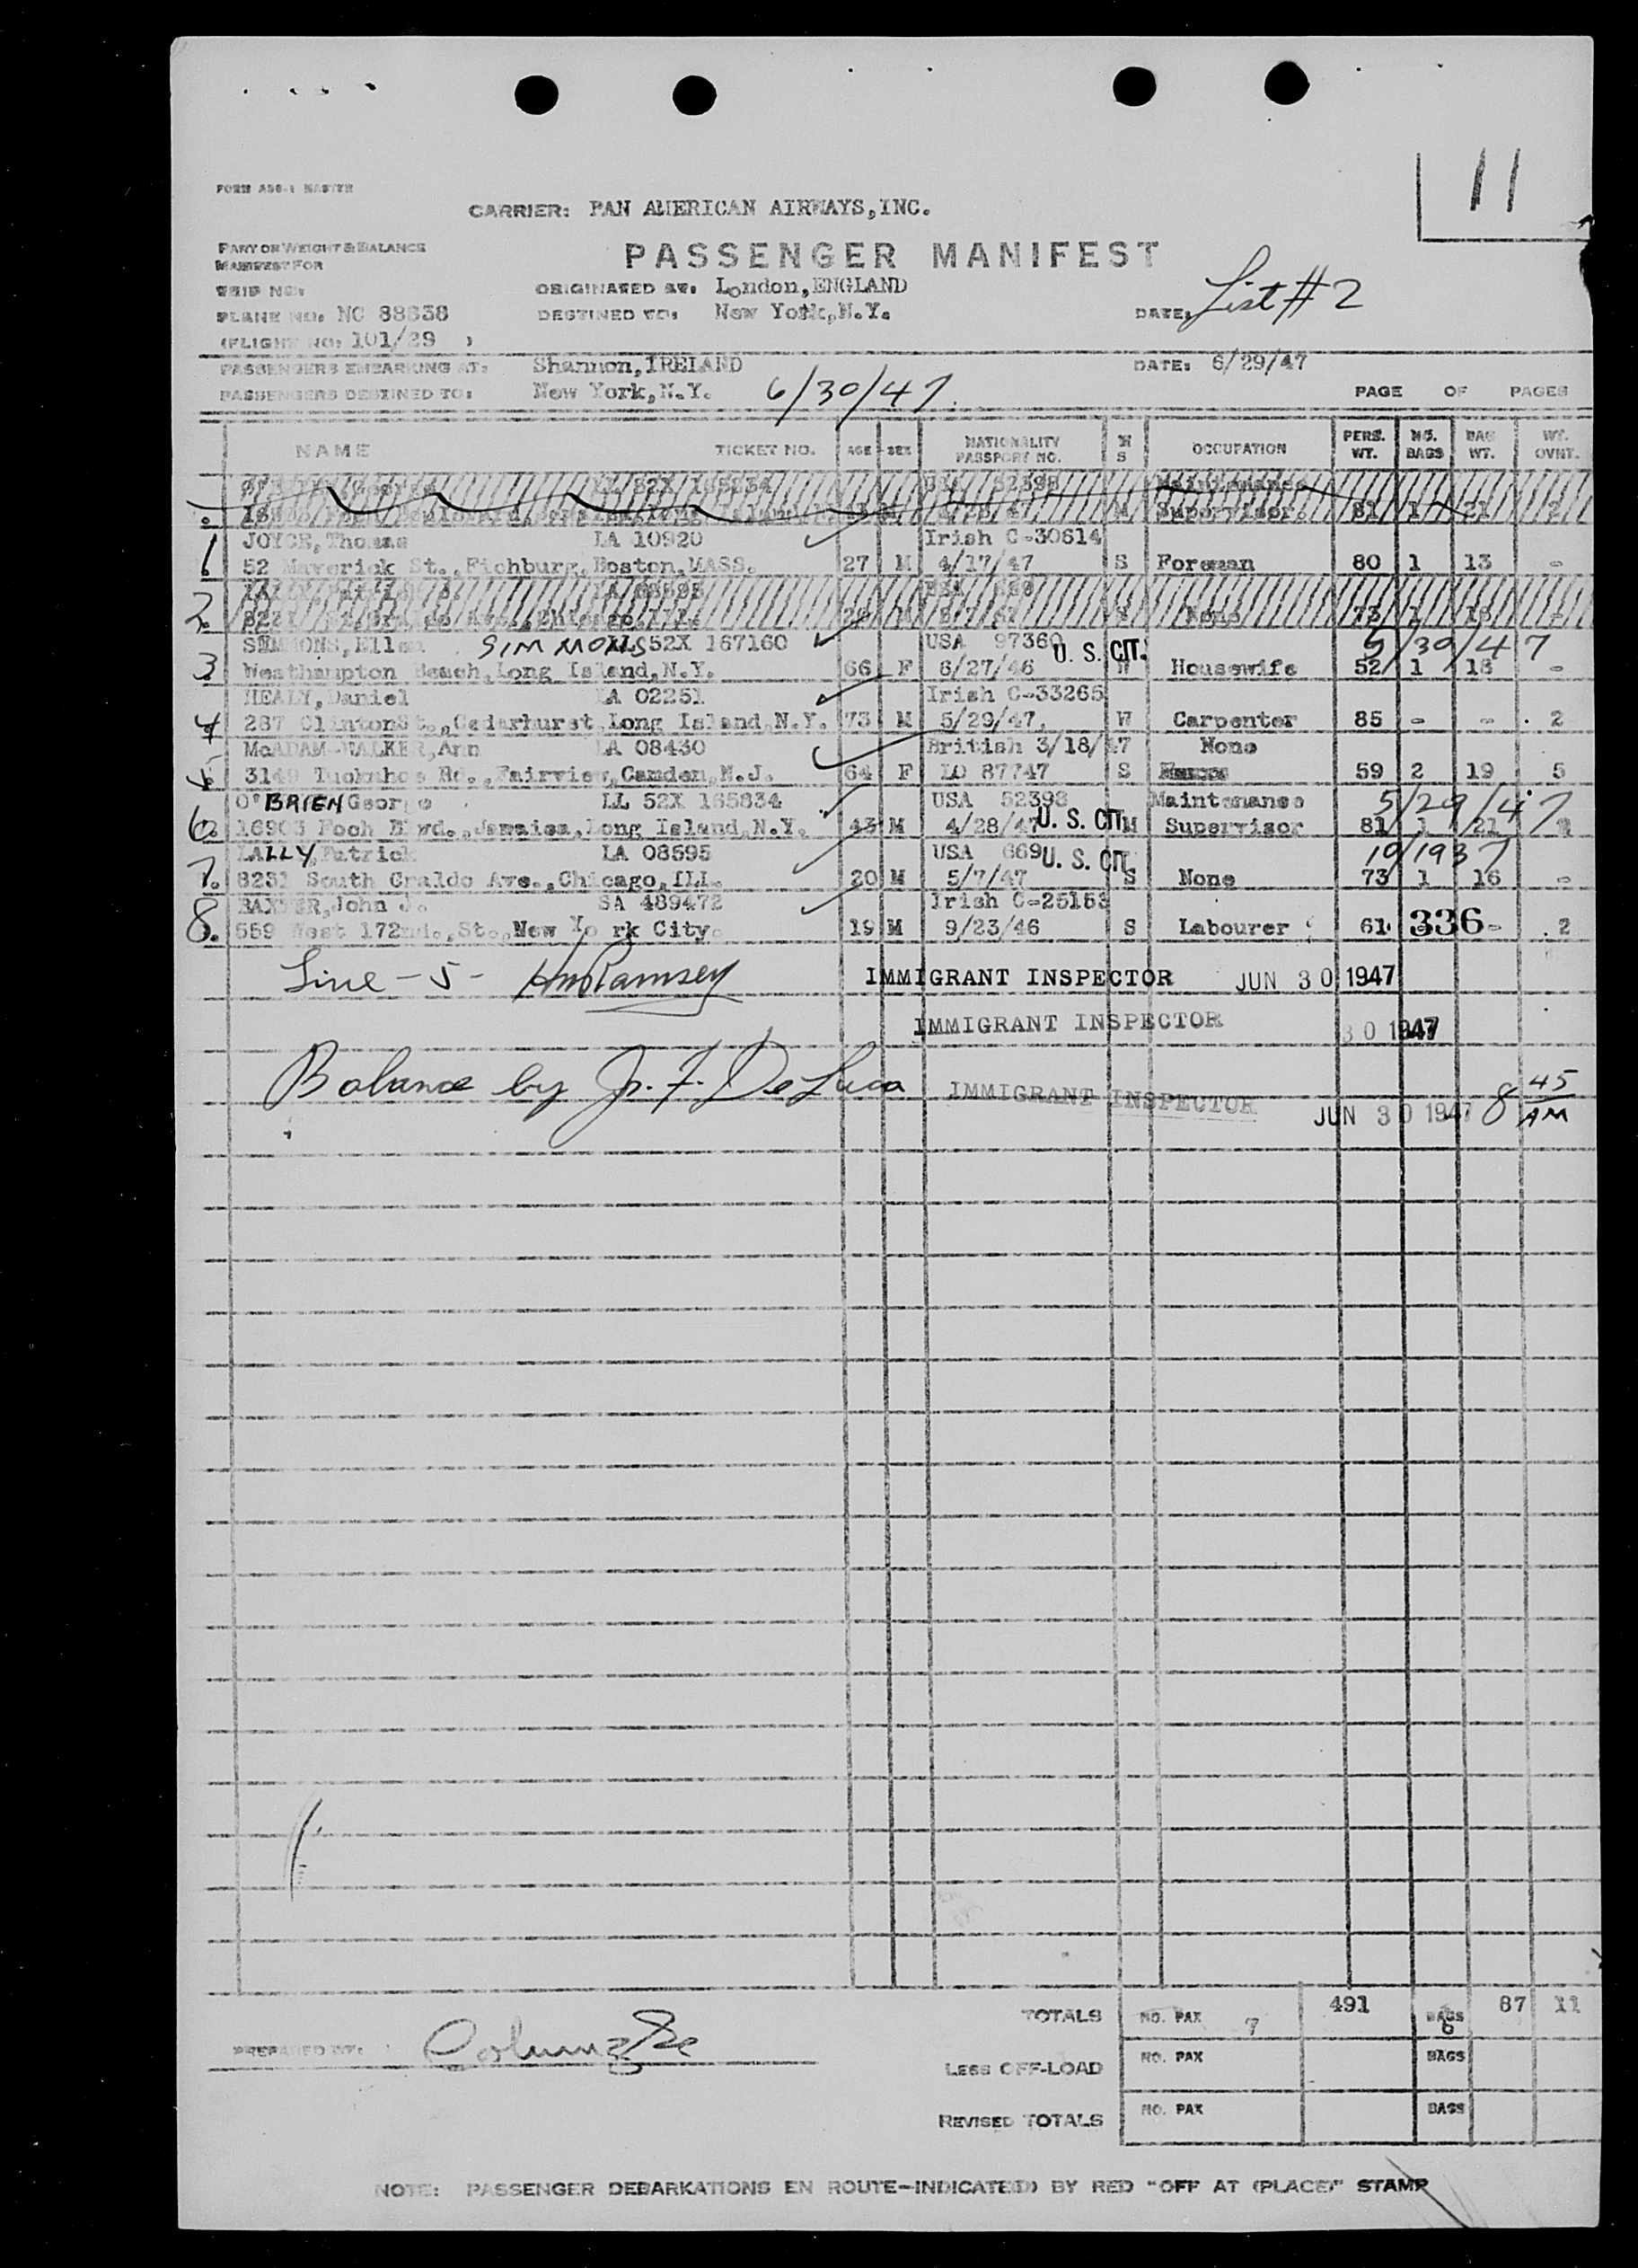 11
FORM ASB-1 MASTER
CARRIER: PAN AMERICAN AIRWAYS,INC.
PART OF WEIGHT & BALANCE
MANIFEST FOR
PASSENGER MANIFEST
TRIP NO:
ORIGINATED AT: London,ENGLAND
PLANE NO: NC 88838
DESTINED TO: New York,N.Y.
DATE: List #2
(FLIGHT NO: 101/29 )
PASSENGERS EMBARKING AT: Shannon,IRELAND DATE: 6/29/47
PASSENGERS DESTINED TO: New York,N.Y. 6/30/47. PAGE OF PAGES
NAME TICKET NO. AGE SEX NATIONALITY PASSPORT NO. M S OCCUPATION PERS. WT. NO. BAGS BAG WT. WT. OVNT.
LL 52X 165834 52398 Maintenance
Supervisor 81 1 21 2
JOYCE,Thomas LA 10920 Irish C-30614
1. 52 Maverick St.,Fichburg,Boston,MASS. 27 M 4/17/47 S Foreman 80 1 13 -
LA 08595
2. None 73 1
SEMMONS,Ellen SIMMONS LL 52X 167160 USA 97360 U. S. CIT. 5/30/47
3. Westhampton Beach,Long Island,N.Y. 66 F 6/27/46 W Housewife 52 1 18 -
HEALY,Daniel LA 02251 Irish C-33265
4 287 ClintonSt.,Cedarhurst,Long Island,N.Y. 73 M 5/29/47, W Carpenter 85 - - 2
McADAM-WALKER,Ann LA 08430 British 3/18/47 None
5. 3149 Tuckahoe Rd.,Fairview,Camden,N.J. 64 F LO 87747 S 59 2 19 5
O'BRIEN George LL 52X 165834 USA 52398 Maintenance 5/29/47
6. 16903 Foch Blvd.,Jamaica,Long Island,N.Y. 43 M 4/28/47 U. S. CIT. M Supervisor 81 1 21 2
LALLY,Patrick LA 08595 USA 669 U. S. CIT. 10/1937
7. 8231 South Craldo Ave.,Chicago,ILL. 20 M 5/7/47 S None 73 1 16 -
BAXTER,John J. SA 489472 Irish C-25153
8. 559 West 172nd.,St.,New Yo rk City. 19 M 9/23/46 S Labourer 61 336 - 2
Line - 5 - HmRamsey IMMIGRANT INSPECTOR JUN 30 1947
IMMIGRANT INSPECTOR 30 1947
Balance by J. F. DeLuca IMMIGRANT INSPECTOR JUN 30 1947 8 45 AM
TOTALS NO. PAX 7 491 BAGS 6 87 11
PREPARED BY:
LESS OFF-LOAD NO. PAX BAGS
REVISED TOTALS NO. PAX BAGS
NOTE: PASSENGER DEBARKATIONS EN ROUTE-INDICATE(D) BY RED "OFF AT (PLACE)" STAMP